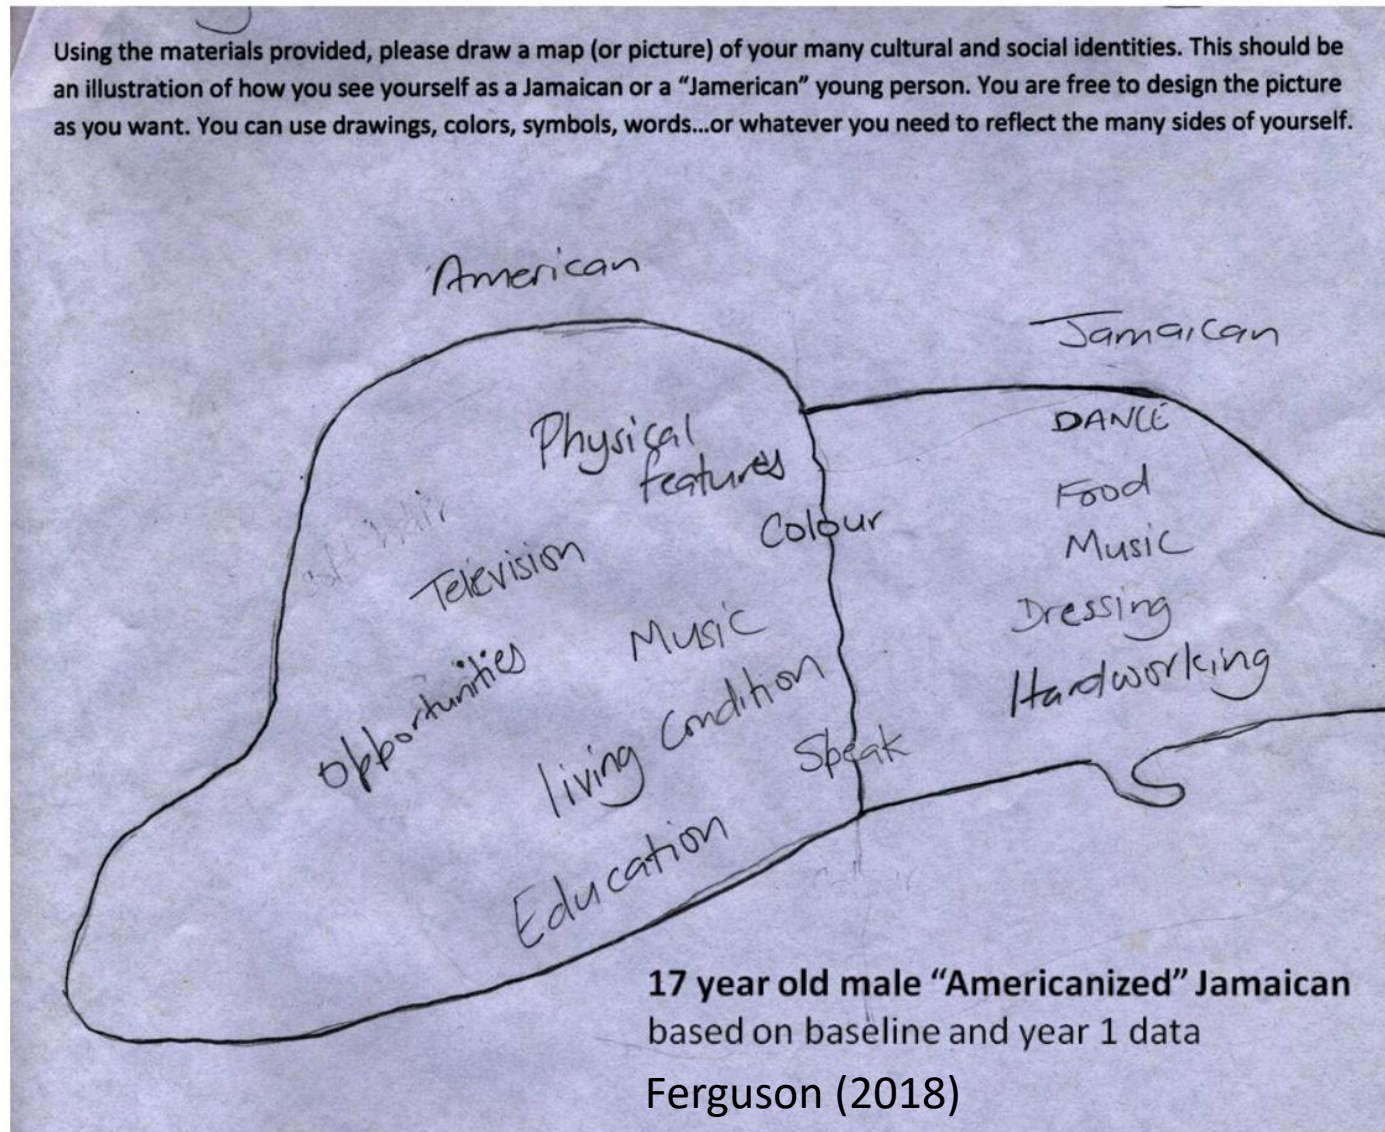 Using the materials provided, please draw a map (or picture) of your many cultural and social identities. This should be
an illustration of how you see yourself as a Jamaican or a “Jamerican” young person. You are free to design the picture
as you want. You can use drawings, colors, symbols, words...or whatever you need to reflect the many sides of yourself.
American
Physical
features
Colour
Television
Music
Opportunities
living Condition
Speak
Education
Jamaican
DANCE
Food
Music
Dressing
Hardworking
17 year old male “Americanized” Jamaican
based on baseline and year 1 data
Ferguson (2018)